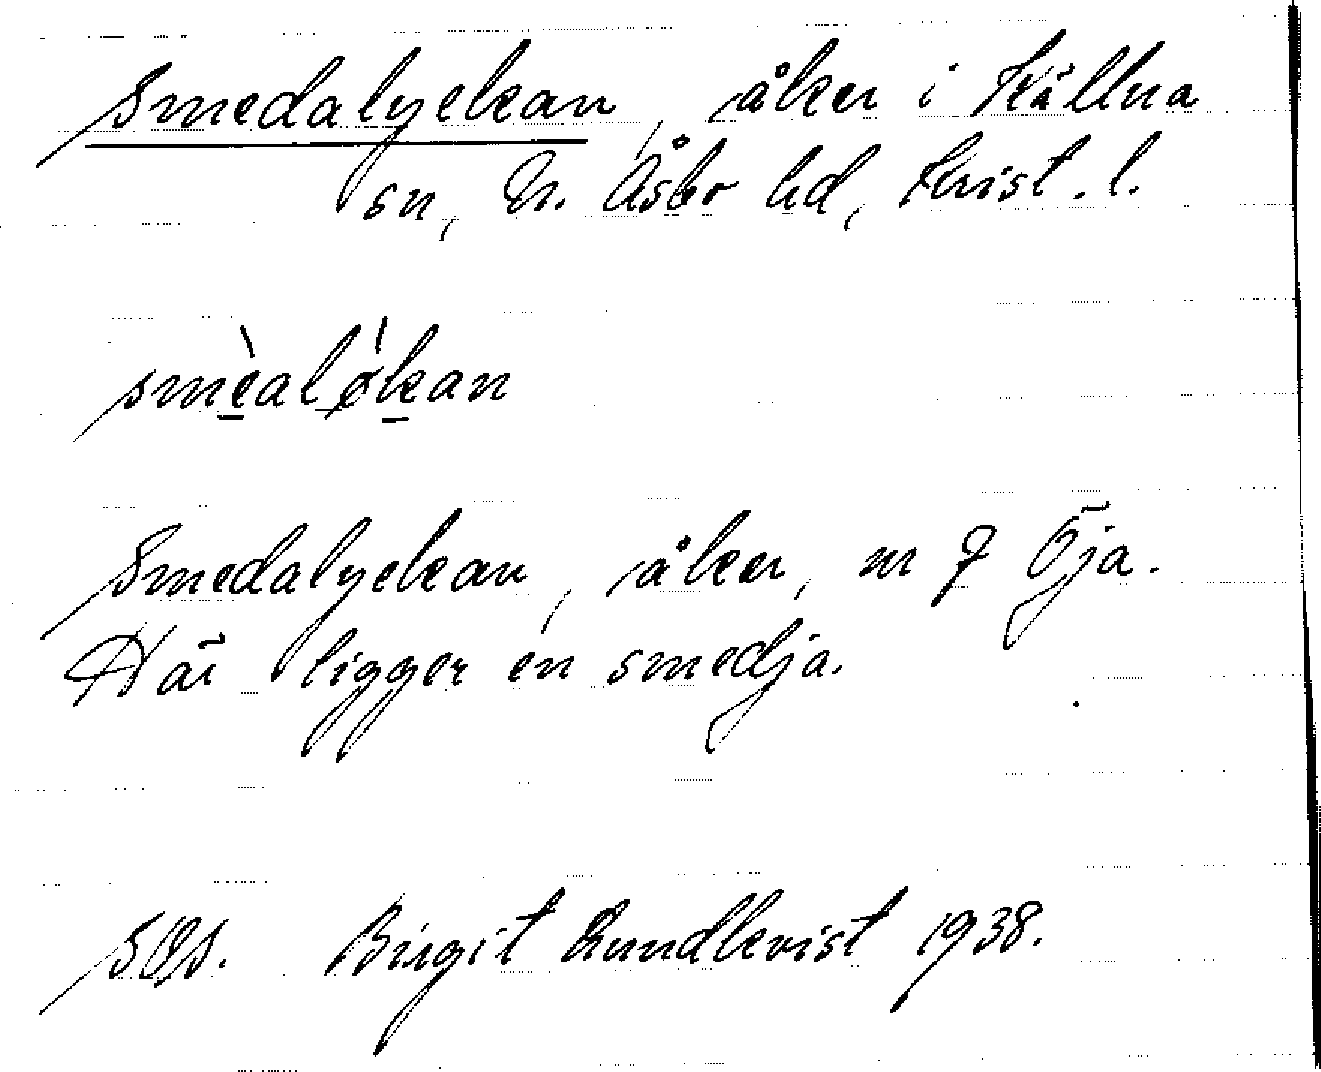 Smedalyckan, åker i Källna
sn, N. Åsbo hd, Krist. l.
smèalǿkan
Smedalyckan, åker, nr 7 Öja.
Här ligger en smedja.
SOS. Birgit Rundkvist 1938.